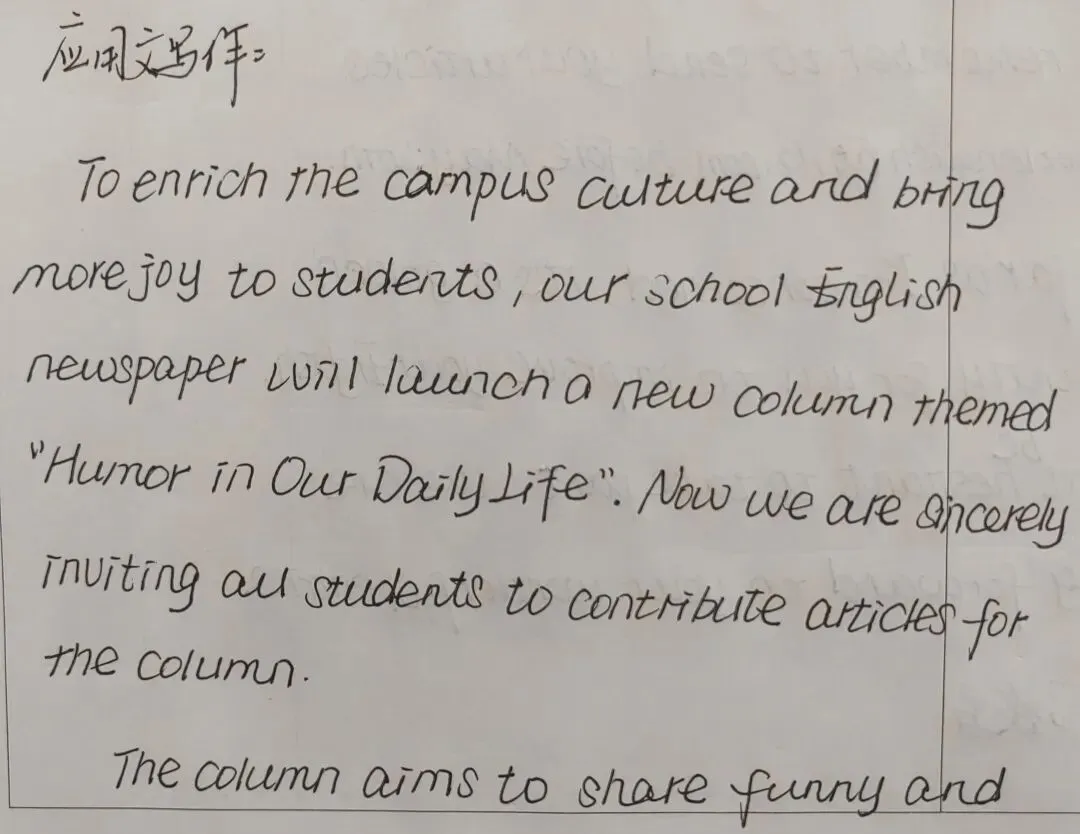 应用文写作:
To enrich the campus culture and bring
more joy to students, our school English
newspaper will launch a new column themed
"Humor in Our Daily Life". Now we are sincerely
inviting all students to contribute articles for
the column.
The column aims to share funny and